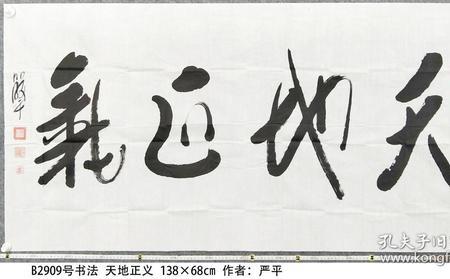 天地正氣
孔夫子旧
kongf
B2909号书法 天地正义 138×68cm 作者：严平